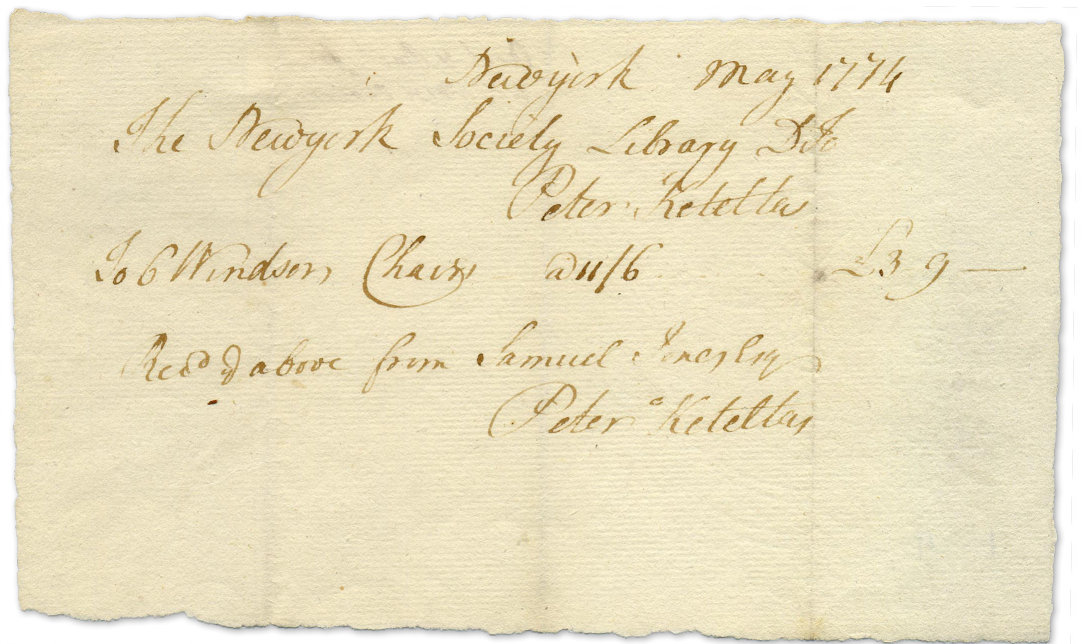 Newyork May 1774
The Newyork Society Library Dr to
Peter Keteltas
To 6 Windsor Chairs @ 11/6 £3 9 —
Recd ye above from Samuel Jones Esqr
Peter Keteltas